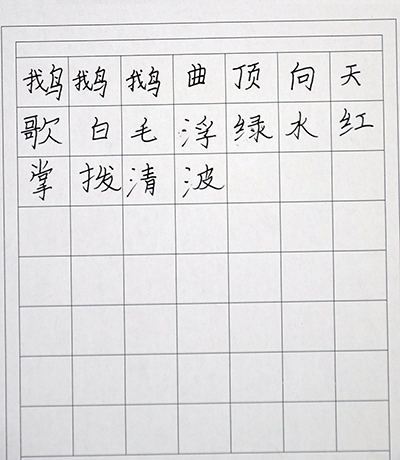 鹅鹅鹅曲顶向天
歌白毛浮绿水红
掌拨清波